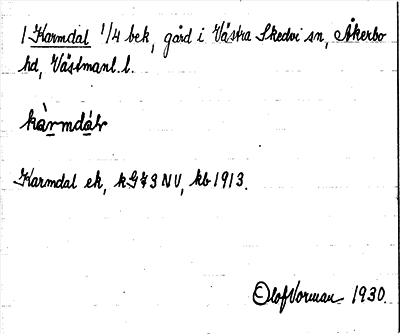 1 Karmdal 1/4 bek, gård i Västra Skedvi sn, Åkerbo
hd, Västmanl. l.
kàrmdáɭ
Karmdal ek, kG73NV, kb 1913.
Olof Vorman 1930.